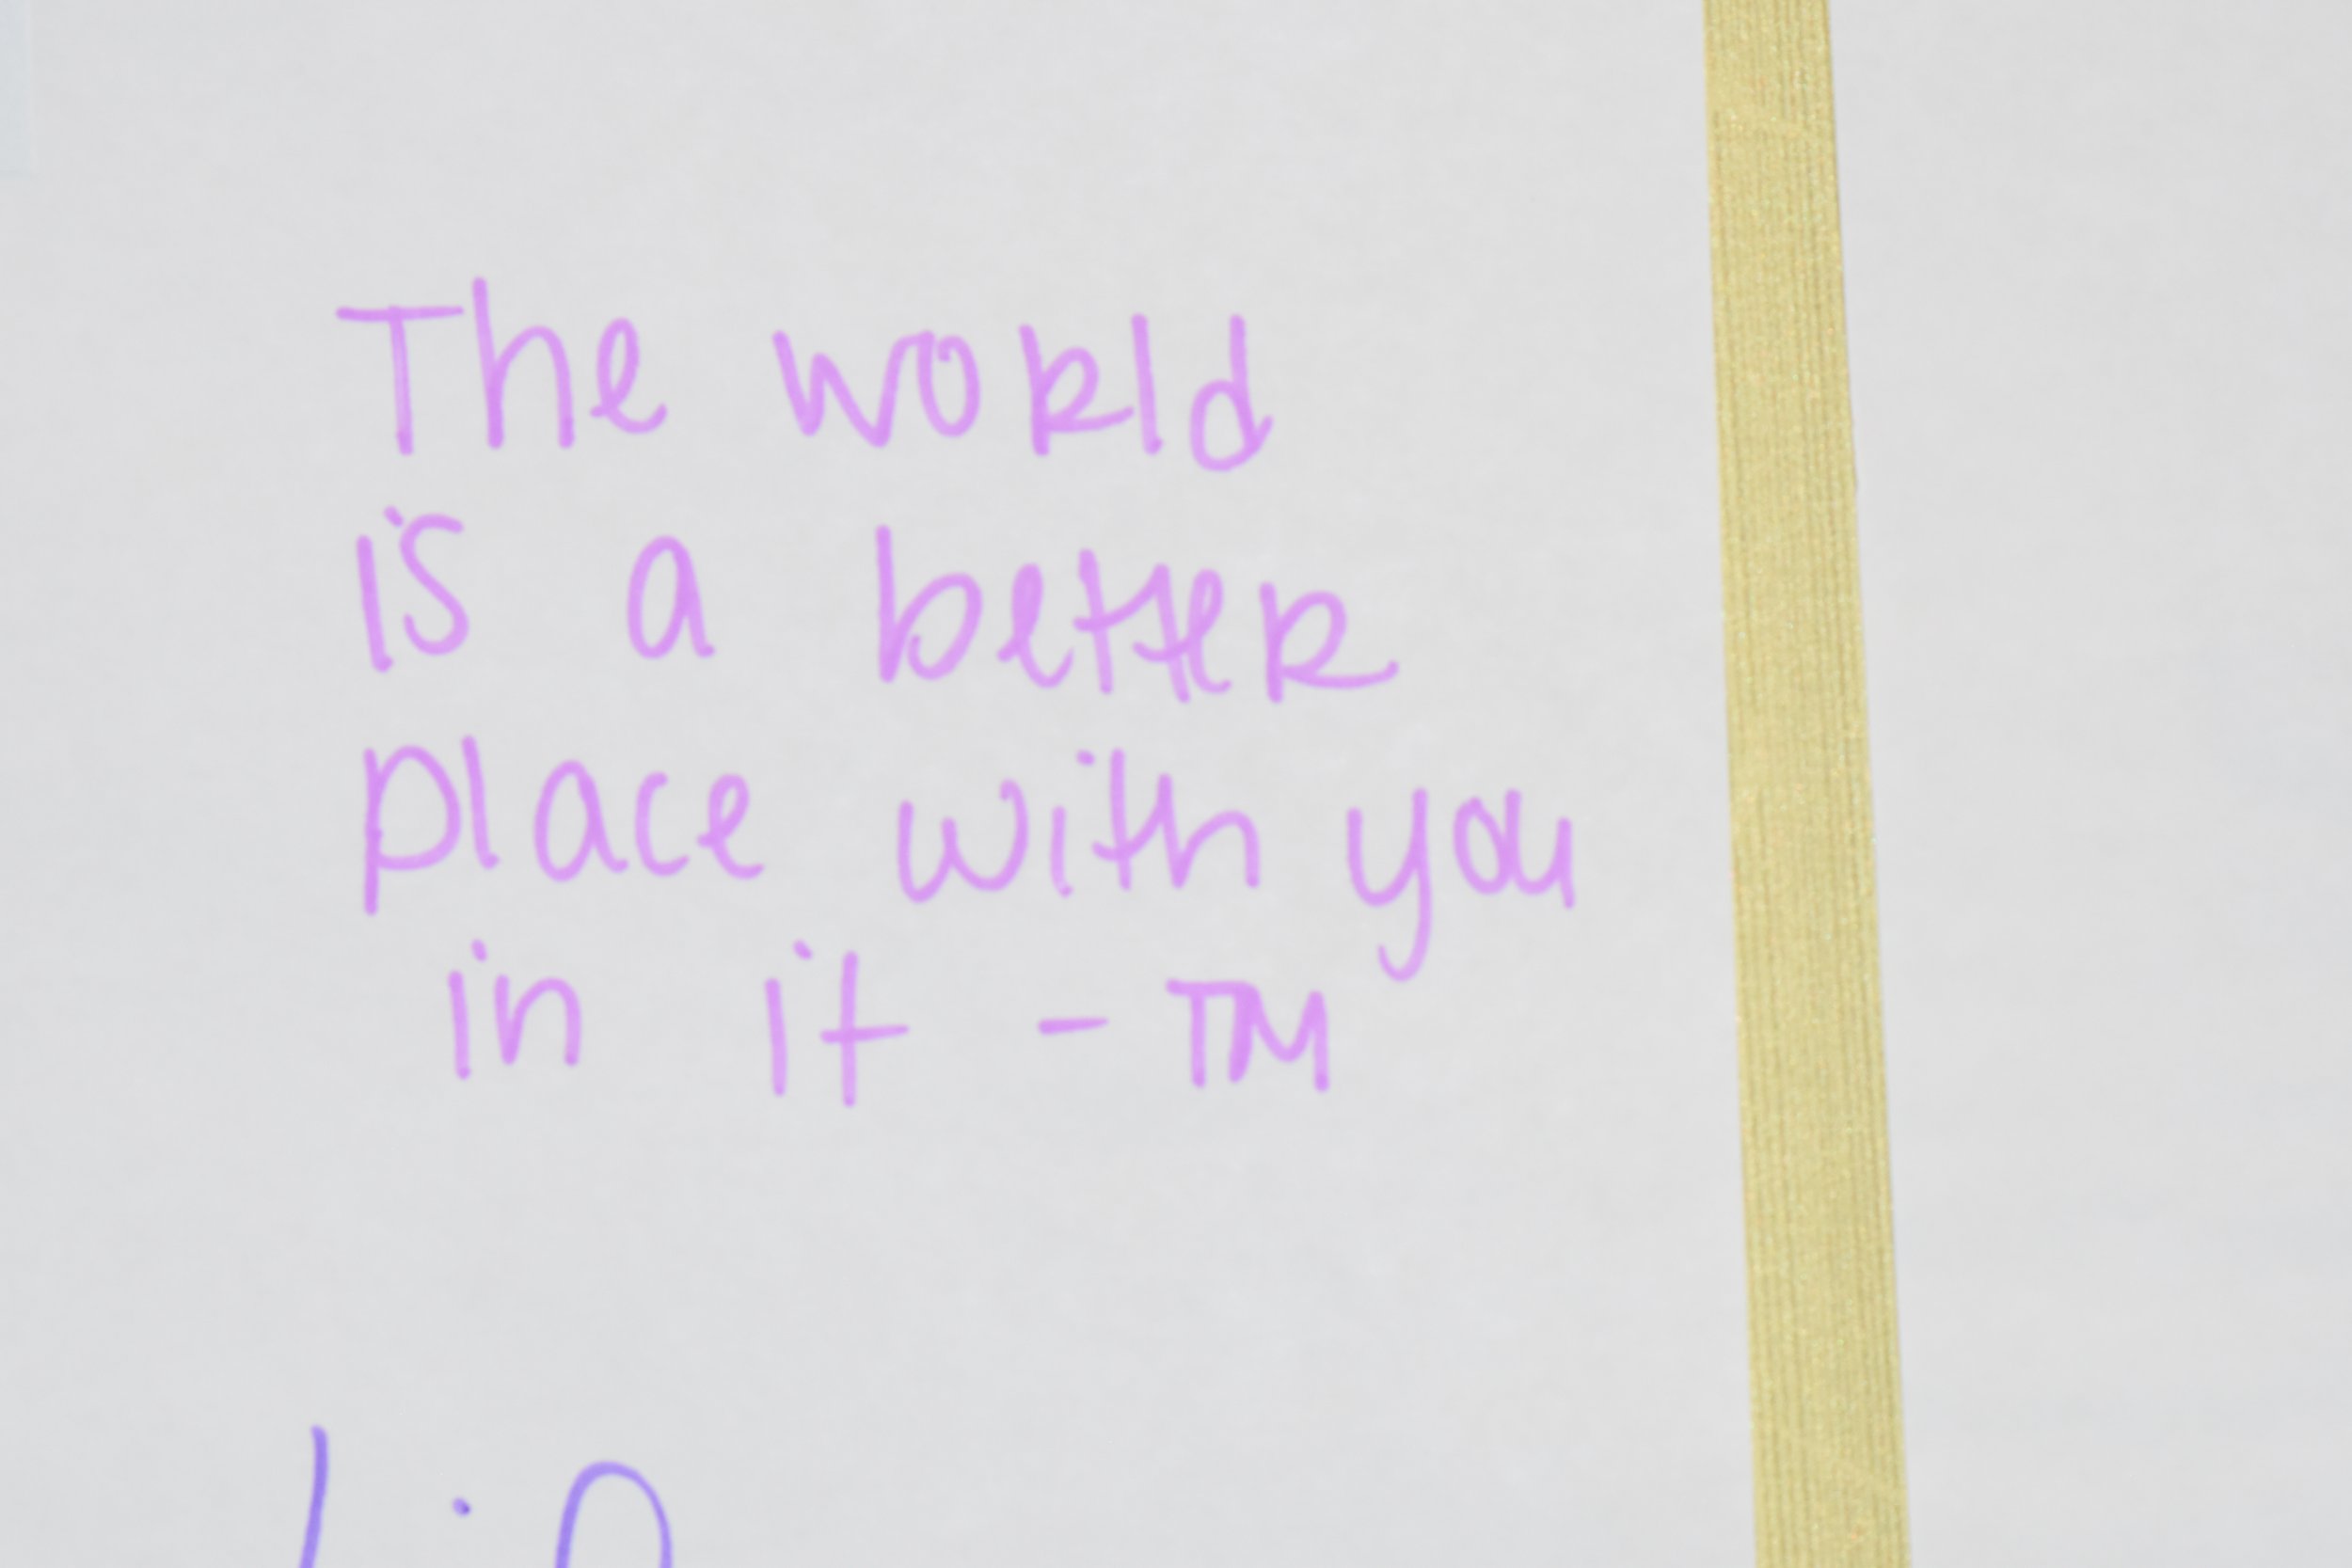 The world
is a better
place with you
in it - TM